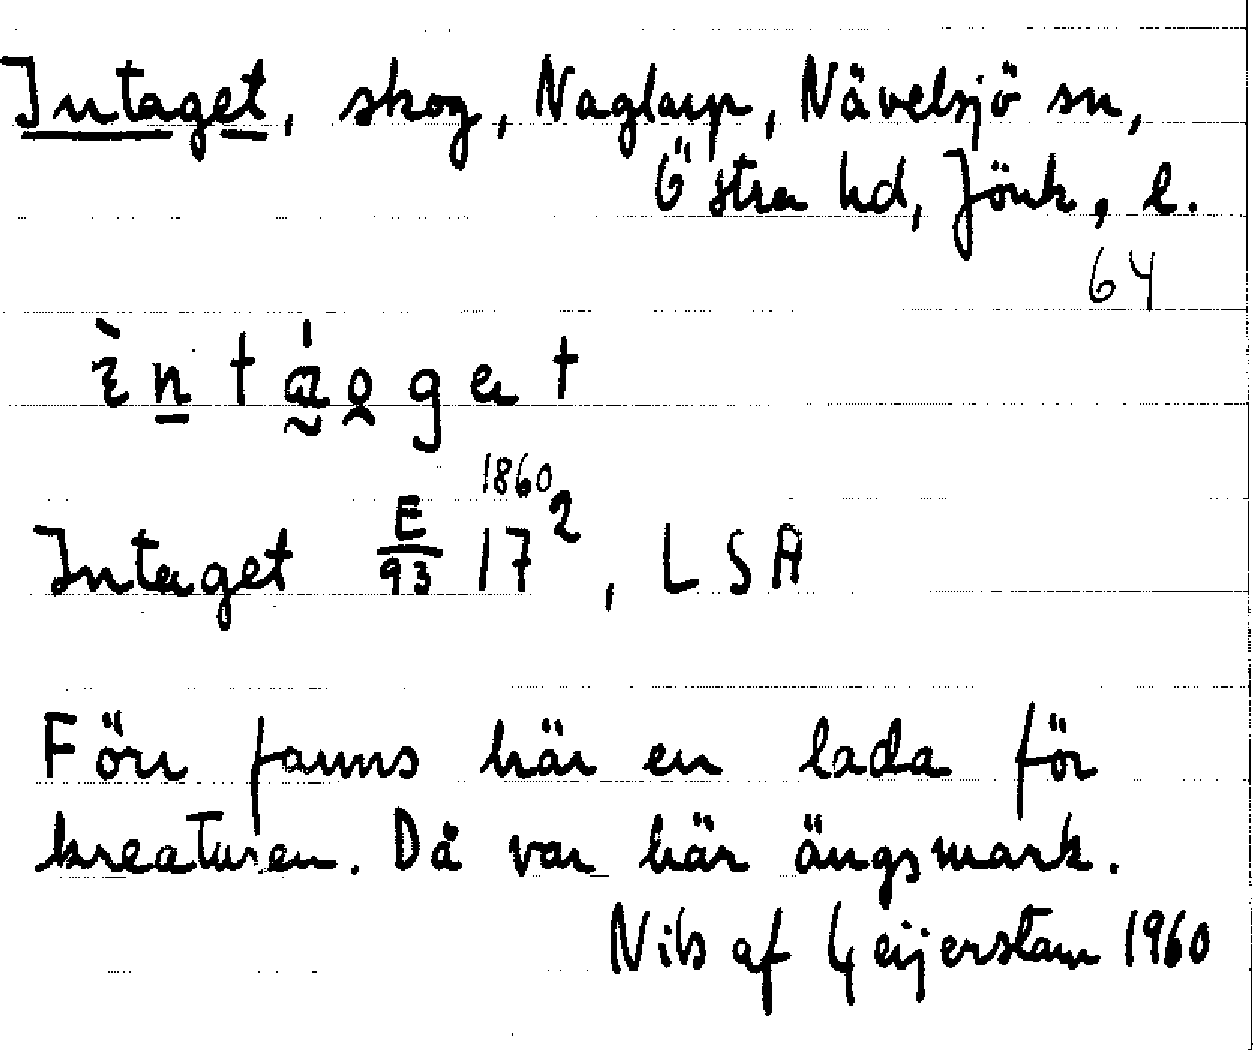 Intaget, skog, Naglarp, Nävelsjö sn,
Östra hd, Jönk, l.
64
ìntáoget
Intaget E/93 17² 1860, LSA
Förr fanns här en lada för
kreaturen. Då var här ängsmark.
Nils af Geijerstam 1960